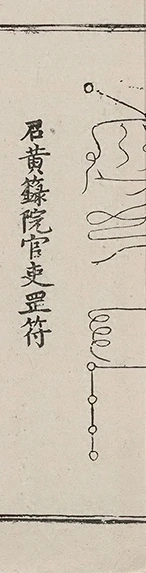 召黃籙院官吏罡符